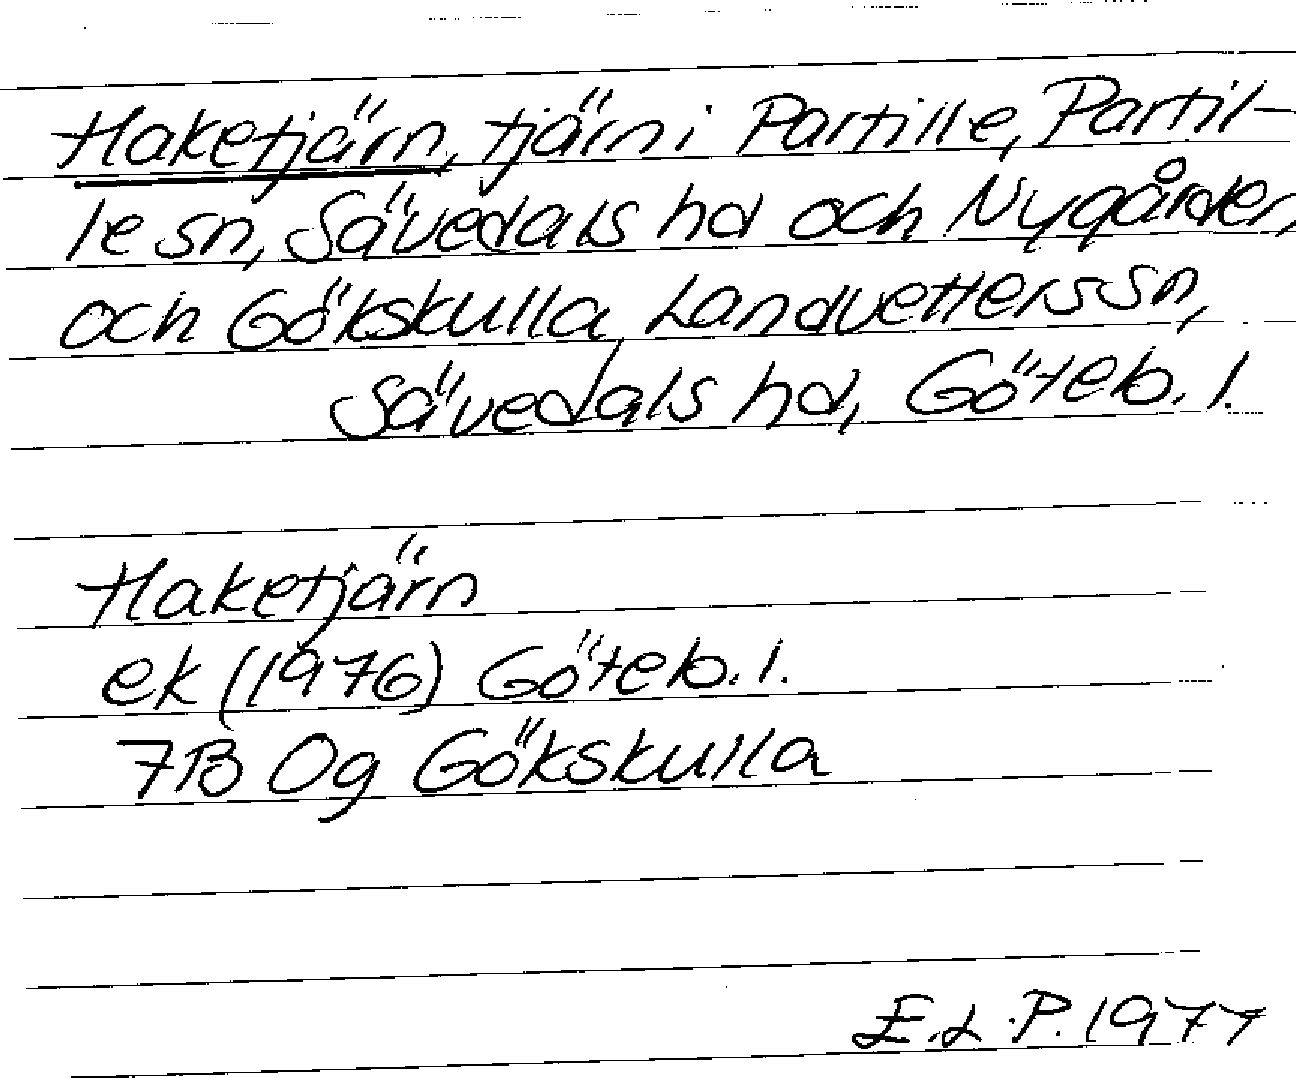 Haketjärn, tjärn i Partille, Partil-
le sn, Sävedals hd och Nygården,
och Gökskulla Landvetters sn,
Sävedals hd, Göteb. l.
Haketjärn
ek (1976) Göteb. l.
7B 0g Gökskulla
E.L.P. 1977